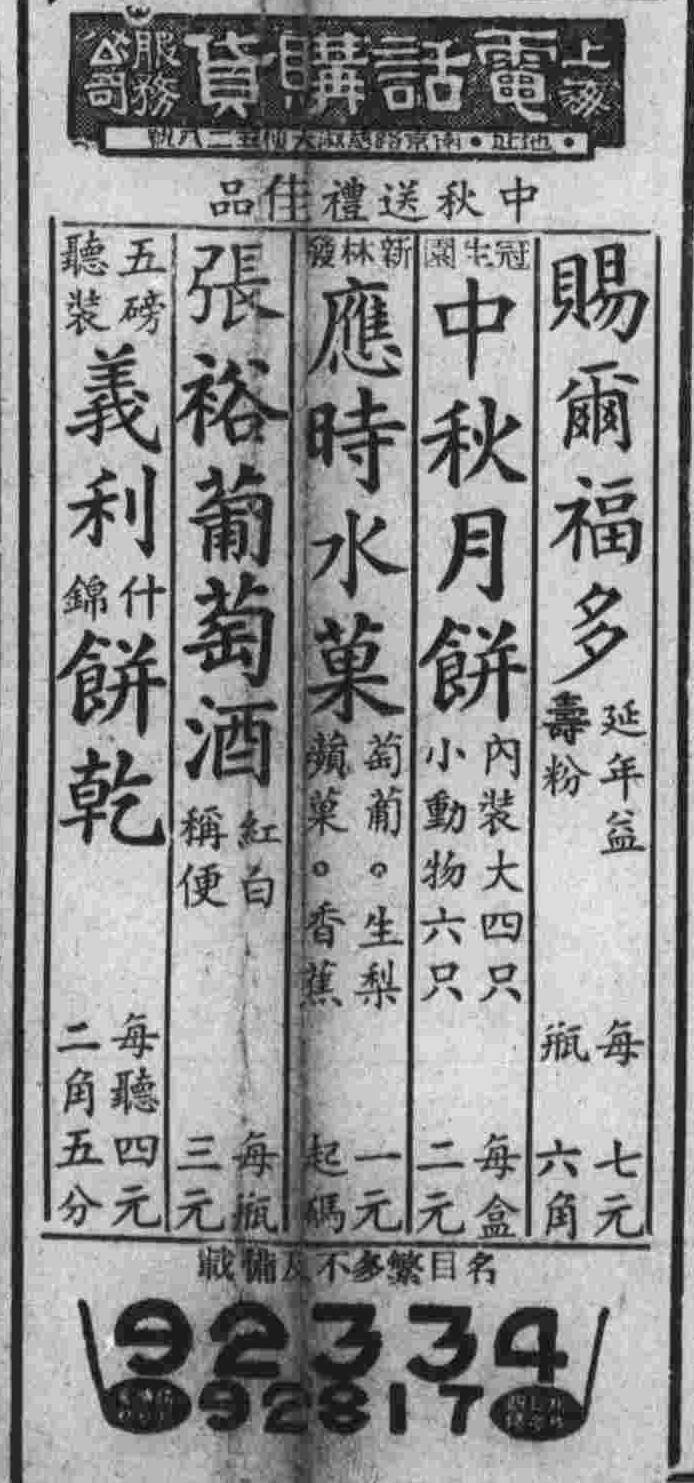 上海電話購貨服務公司
中秋送禮佳品
賜爾福多
延年益
壽粉
每
瓶
七元
六角
冠生園
中秋月餅
內裝大四只
小動物六只
每盒
二元
新林發
應時水菓
萄葡。生梨
蘋菓。香蕉
一元
起碼
張裕葡萄酒
紅白
稱便
每瓶
三元
五磅
聽裝
義利
什
錦
餅乾
每聽四元
二角五分
名目繁多不及備載
92334
92817